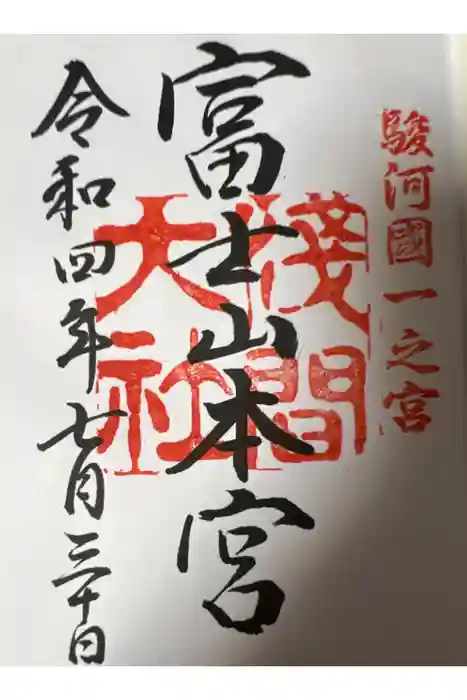 駿河國一之宮
富士山本宮
浅間
大社
令和四年七月三十日